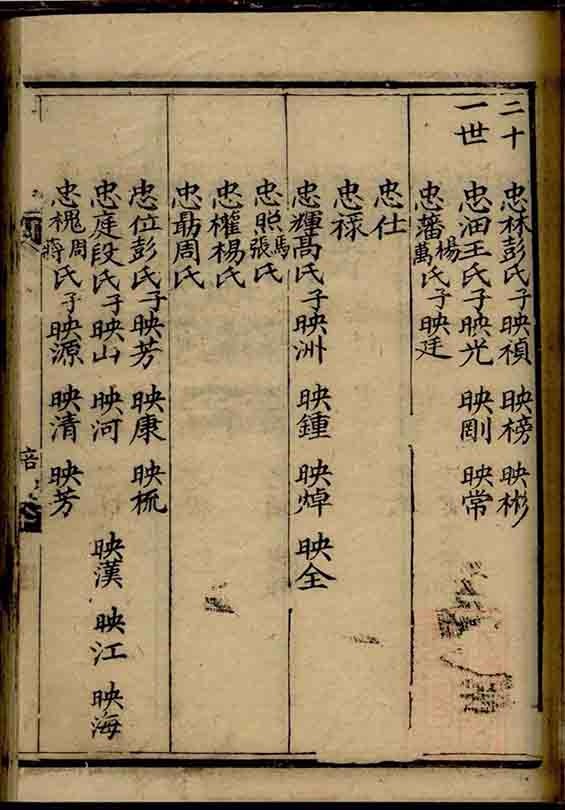 二十
一世
忠林彭氏子映禎 映榜 映彬
忠油王氏子映光 映剛 映常
忠藩楊萬氏子映廷
忠仕
忠祿
忠輝高氏子映洲 映鍾 映焯 映全
忠照馬張氏
忠權楊氏
忠勗周氏
忠位彭氏子映芳 映康 映梳
忠庭段氏子映山 映河 映漢 映江 映海
忠槐周蔣氏子映源 映清 映芳